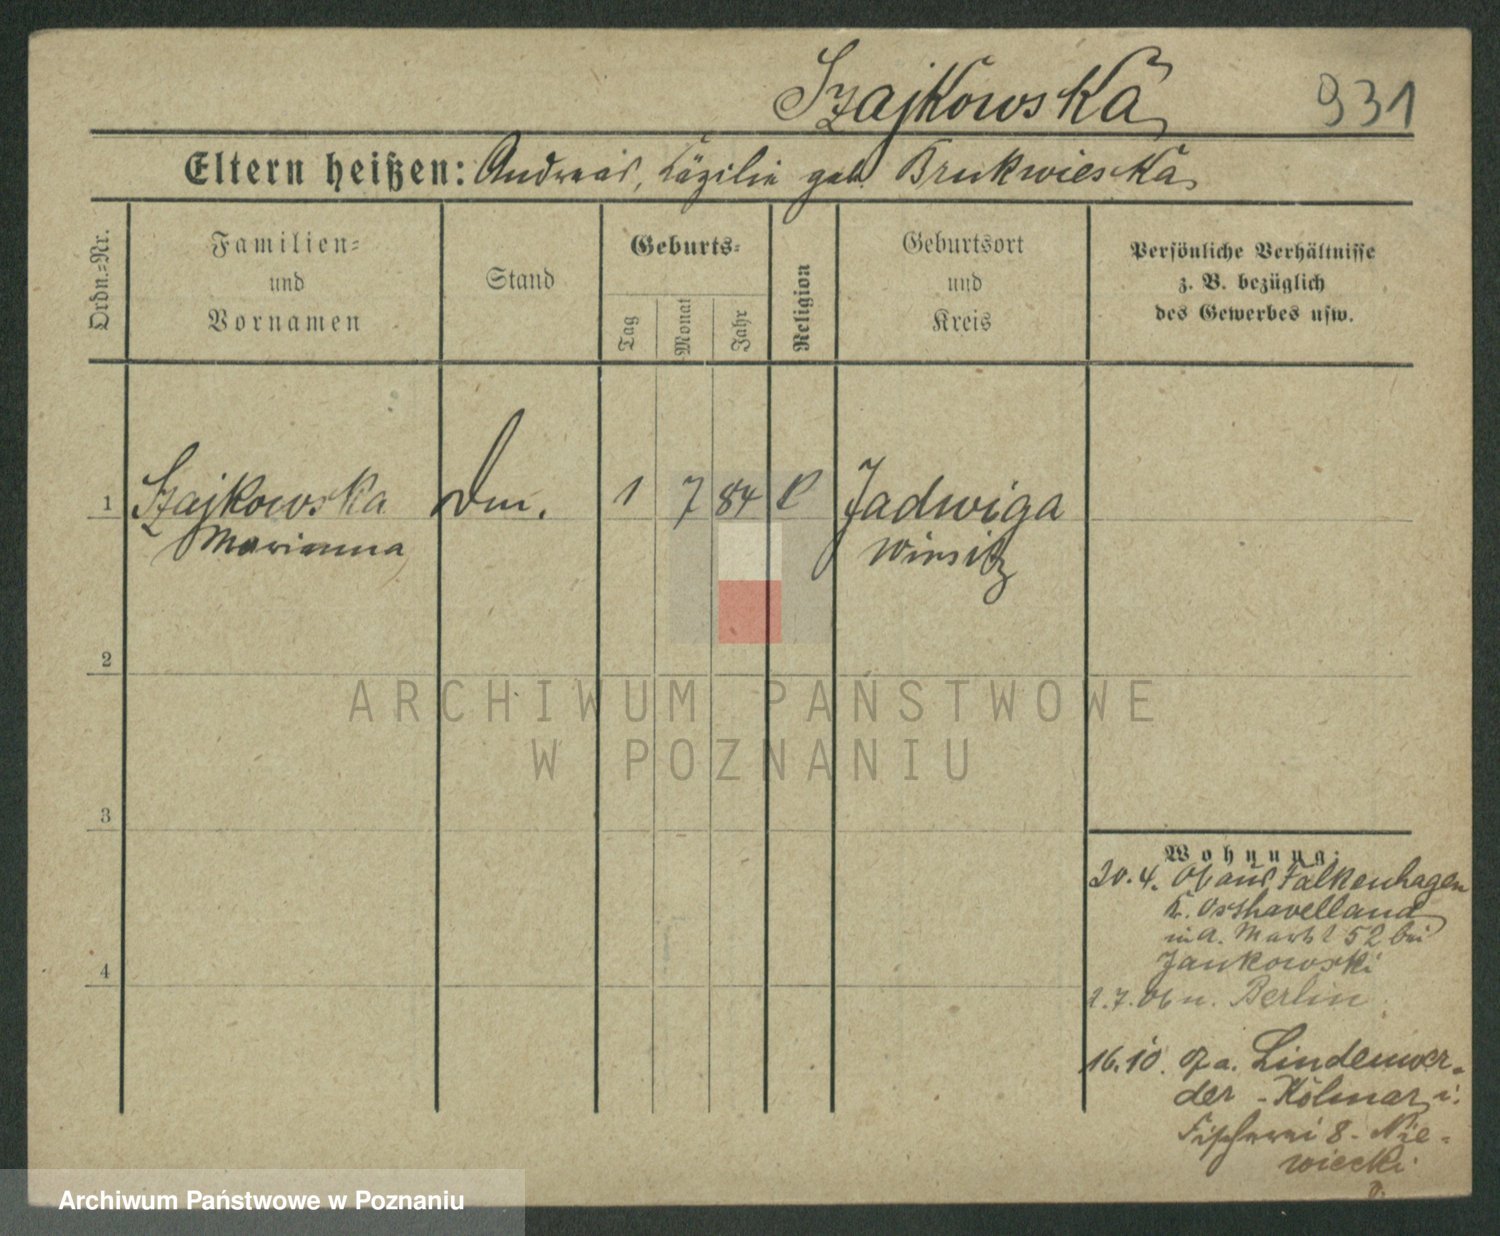 Szajkowska 931
Eltern heißen: Andreas, Cäzilie geb. Brukwieska
Ordn.=Nr.
Familien=
und
Vornamen
Stand
Geburts=
Tag
Monat
Jahr
Religion
Geburtsort
und
Kreis
Persönliche Verhältnisse
z. B. bezüglich
des Gewerbes usw.
1 Szajkowska Dm. 1 7 84 k Jadwiga
Marianna Wirsitz
2
ARCHIWUM PAŃSTWOWE
W POZNANIU
3
4
Wohnung:
20.4. aus Falkenhagen
K. Osthavelland
in A. Markt 52 bei
Jankowski
2.7. n. Berlin
16.10. a. Lindenwer-
der - Kolmar i.
Fischerei 8 - Nie-
wiecki
Archiwum Państwowe w Poznaniu